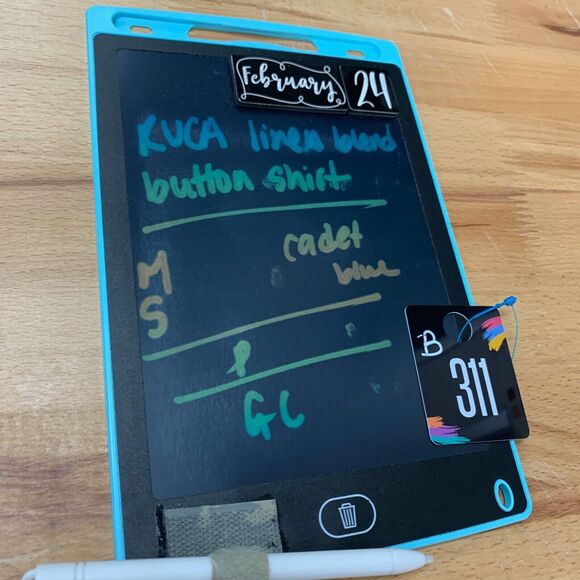 February 24
KUCA linen blend
button shirt
M cadet
blue
S
P
GC
B
311